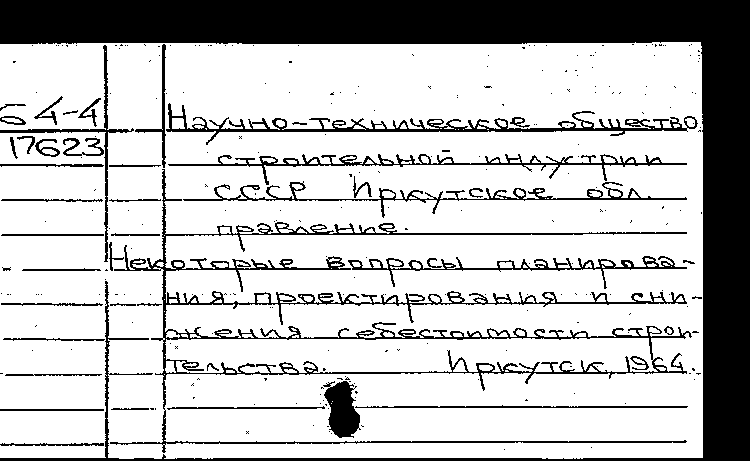 64-4
17623
Научно-техническое общество
строительной индустрии
СССР Иркутское обл.
правление.
Некоторые вопросы планирова-
ния, проектирования и сни-
жения себестоимости строи-
тельства. Иркутск, 1964.